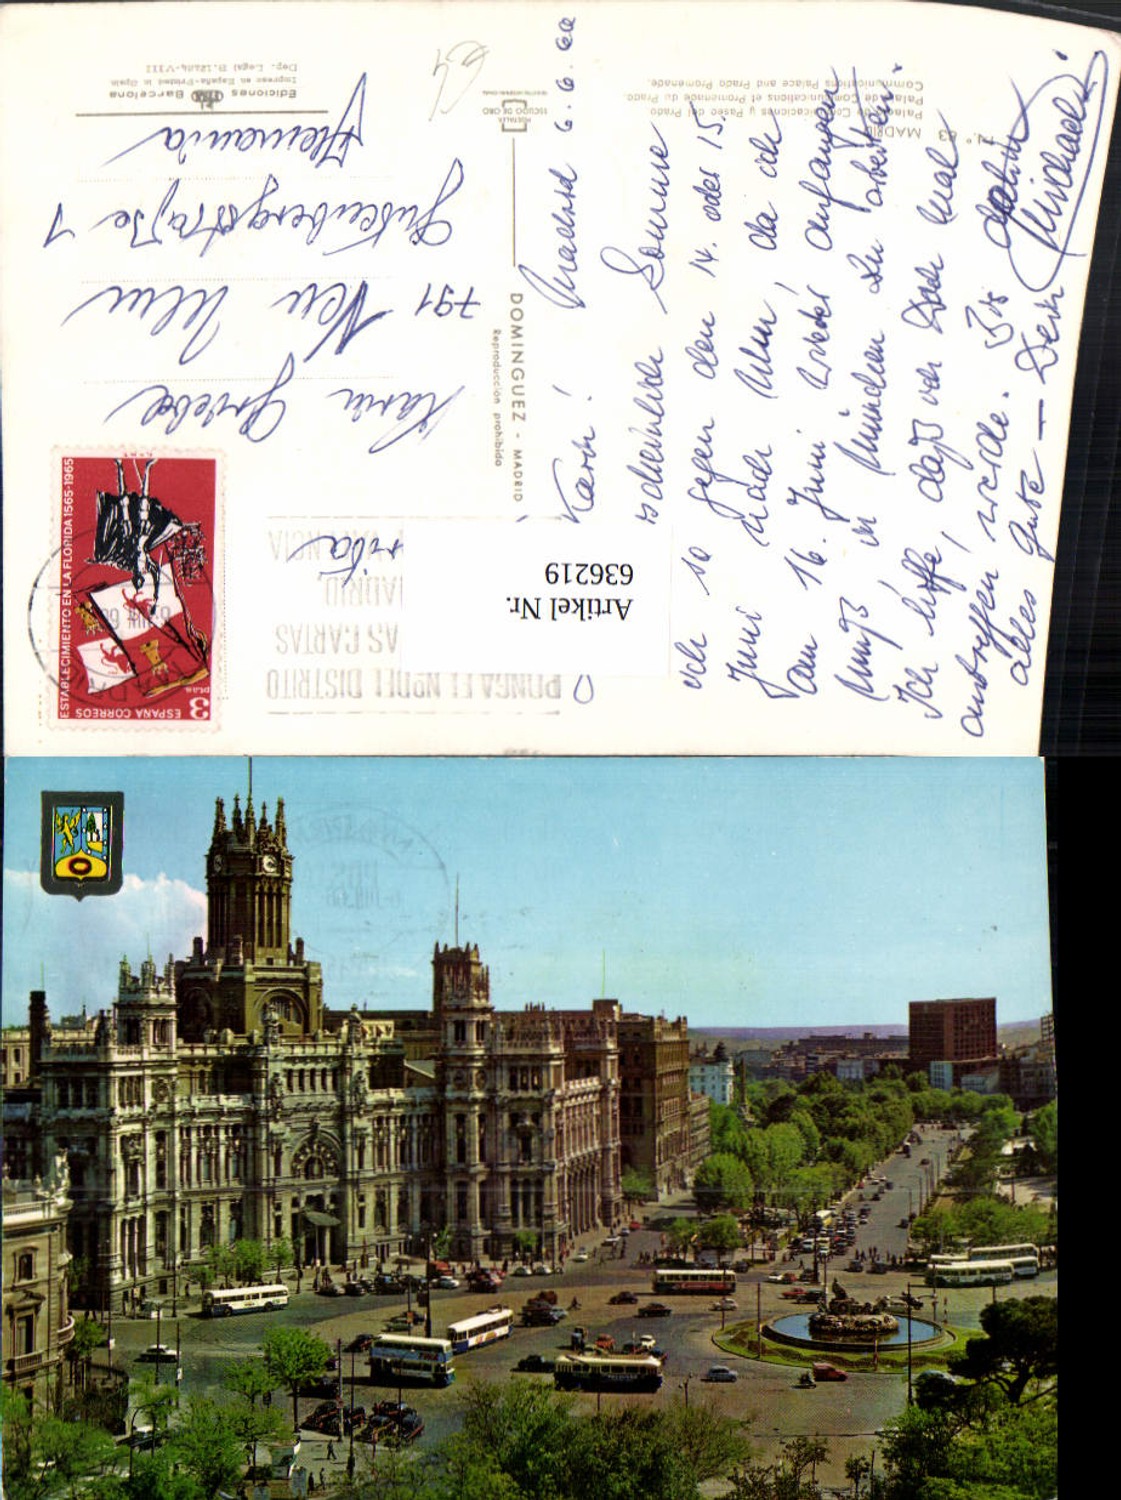 N.º 63 MADRID
Palacio de Comunicaciones y Paseo del Prado.
Palais de Communications et Promenade du Prado.
Communications Palace and Prado Promenade.
Madrid 6.6.66
Karin!
ich so gegen den 14. oder 15.
Juni nach Ulm, da ich
am 16. Juni wieder anfangen
muß in München zu arbeiten.
Ich hoffe, daß ich Dich mal
antreffen werde. Bis dahin
alles Gute – Dein Michael
DOMINGUEZ - MADRID
Reproducción prohibida
POSTALES
ESCUDO DE ORO
Ediciones Barcelona
Impreso en España-Printed in Spain
Dep. Legal B. -VIII
3 PTAS
ESPAÑA CORREOS
ESTABLECIMIENTO EN LA FLORIDA 1565-1965
PONGA EL Nº DEL DISTRITO
AS CARTAS
ADRID
Karin
791 Neu Ulm
Gutenbergstraße 1
Alemania
Artikel Nr.
636219